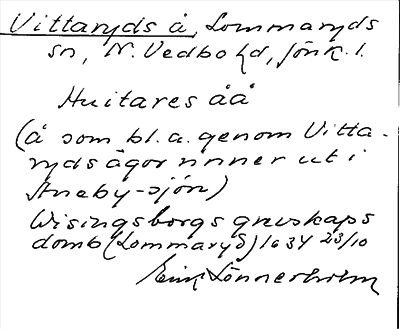 Vittaryds å, Lommaryds
sn, N. Vedbo hd, Jönk. l.
Huitares åå
(å som bl. a. genom Vitta-
rydsägor rinner ut i
Aneby-sjön)
Wisingsborgs grevskaps
domb (Lommaryd) 1634 23/10
Lönnerholm